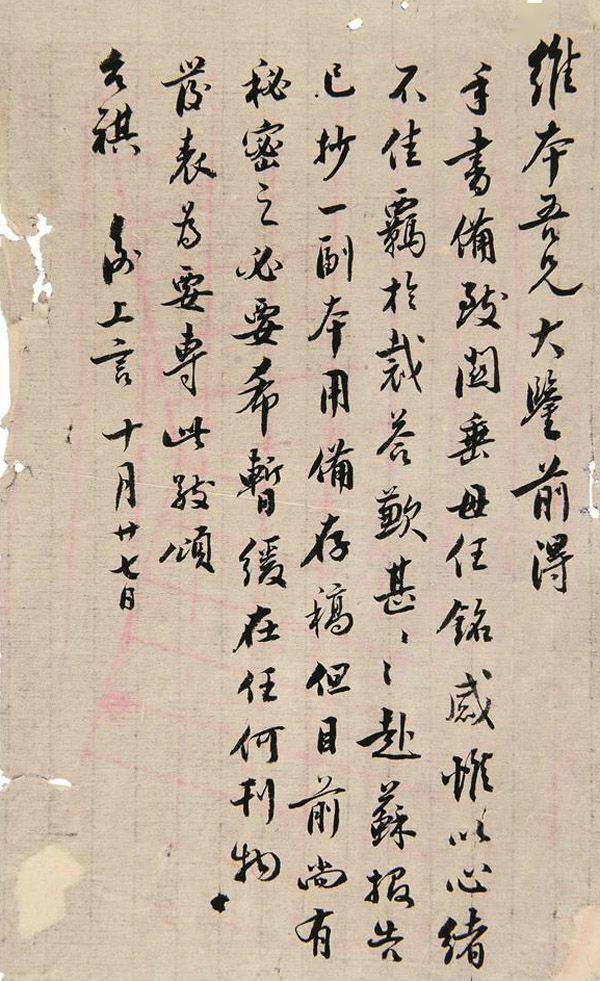 維本吾兄大鑒前得
手書備致關垂毋任銘感惟以心緒
不佳羈於裁答歉甚〻赴蘇報告
已抄一副本用備存稿但目前尚有
秘密之必要希暫緩在任何刊物
發表為要專此敬頌
台祺 上言十月廿七日